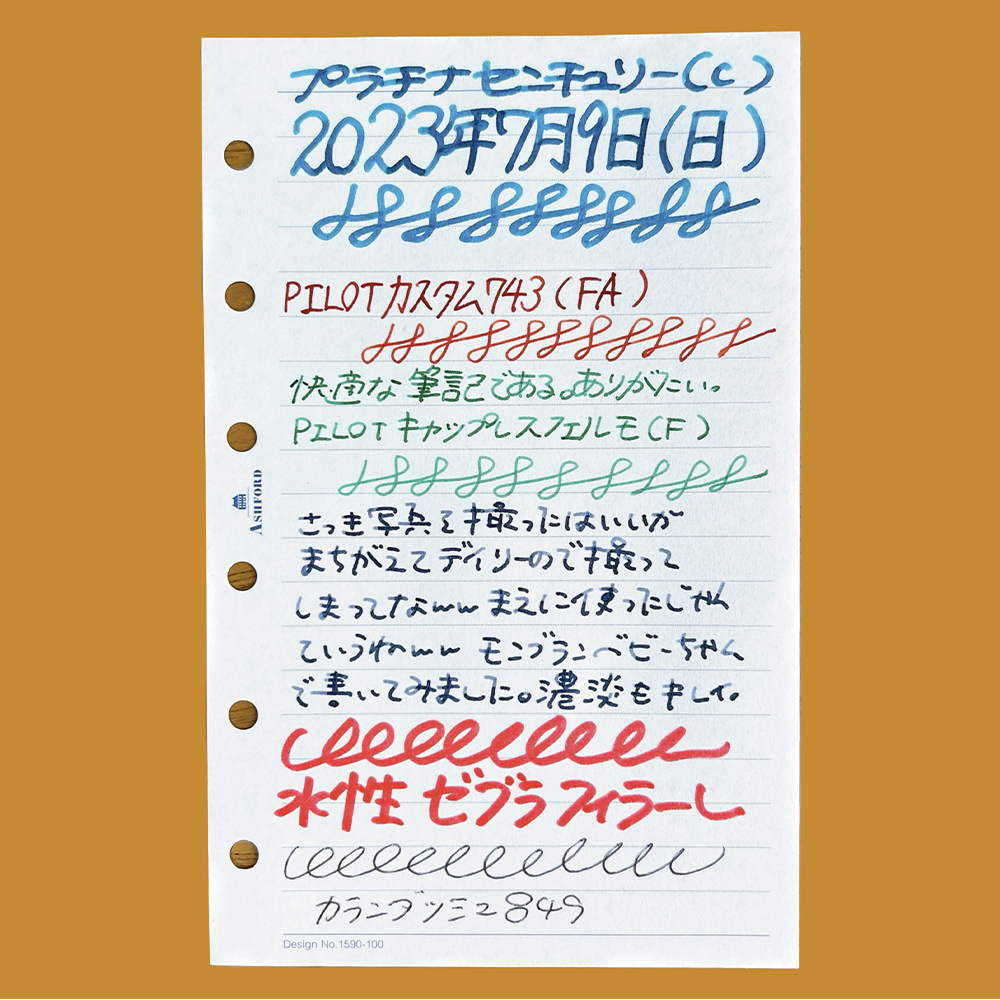 プラチナセンチュリー(C)
2023年7月9日(日)
PILOTカスタム743(FA)
快適な筆記である。ありがたい。
PILOTキャップレスフェルモ(F)
ASHFORD
さっき写真を撮ったはいいが
まちがえてデイリーので撮って
しまってなww まえに使ったじゃん
ていうねww モンブランベビーちゃん
で書いてみました。濃淡もキレイ。
水性 ゼブラ フィラーレ
カランダッシュ849
Design No.1590-100